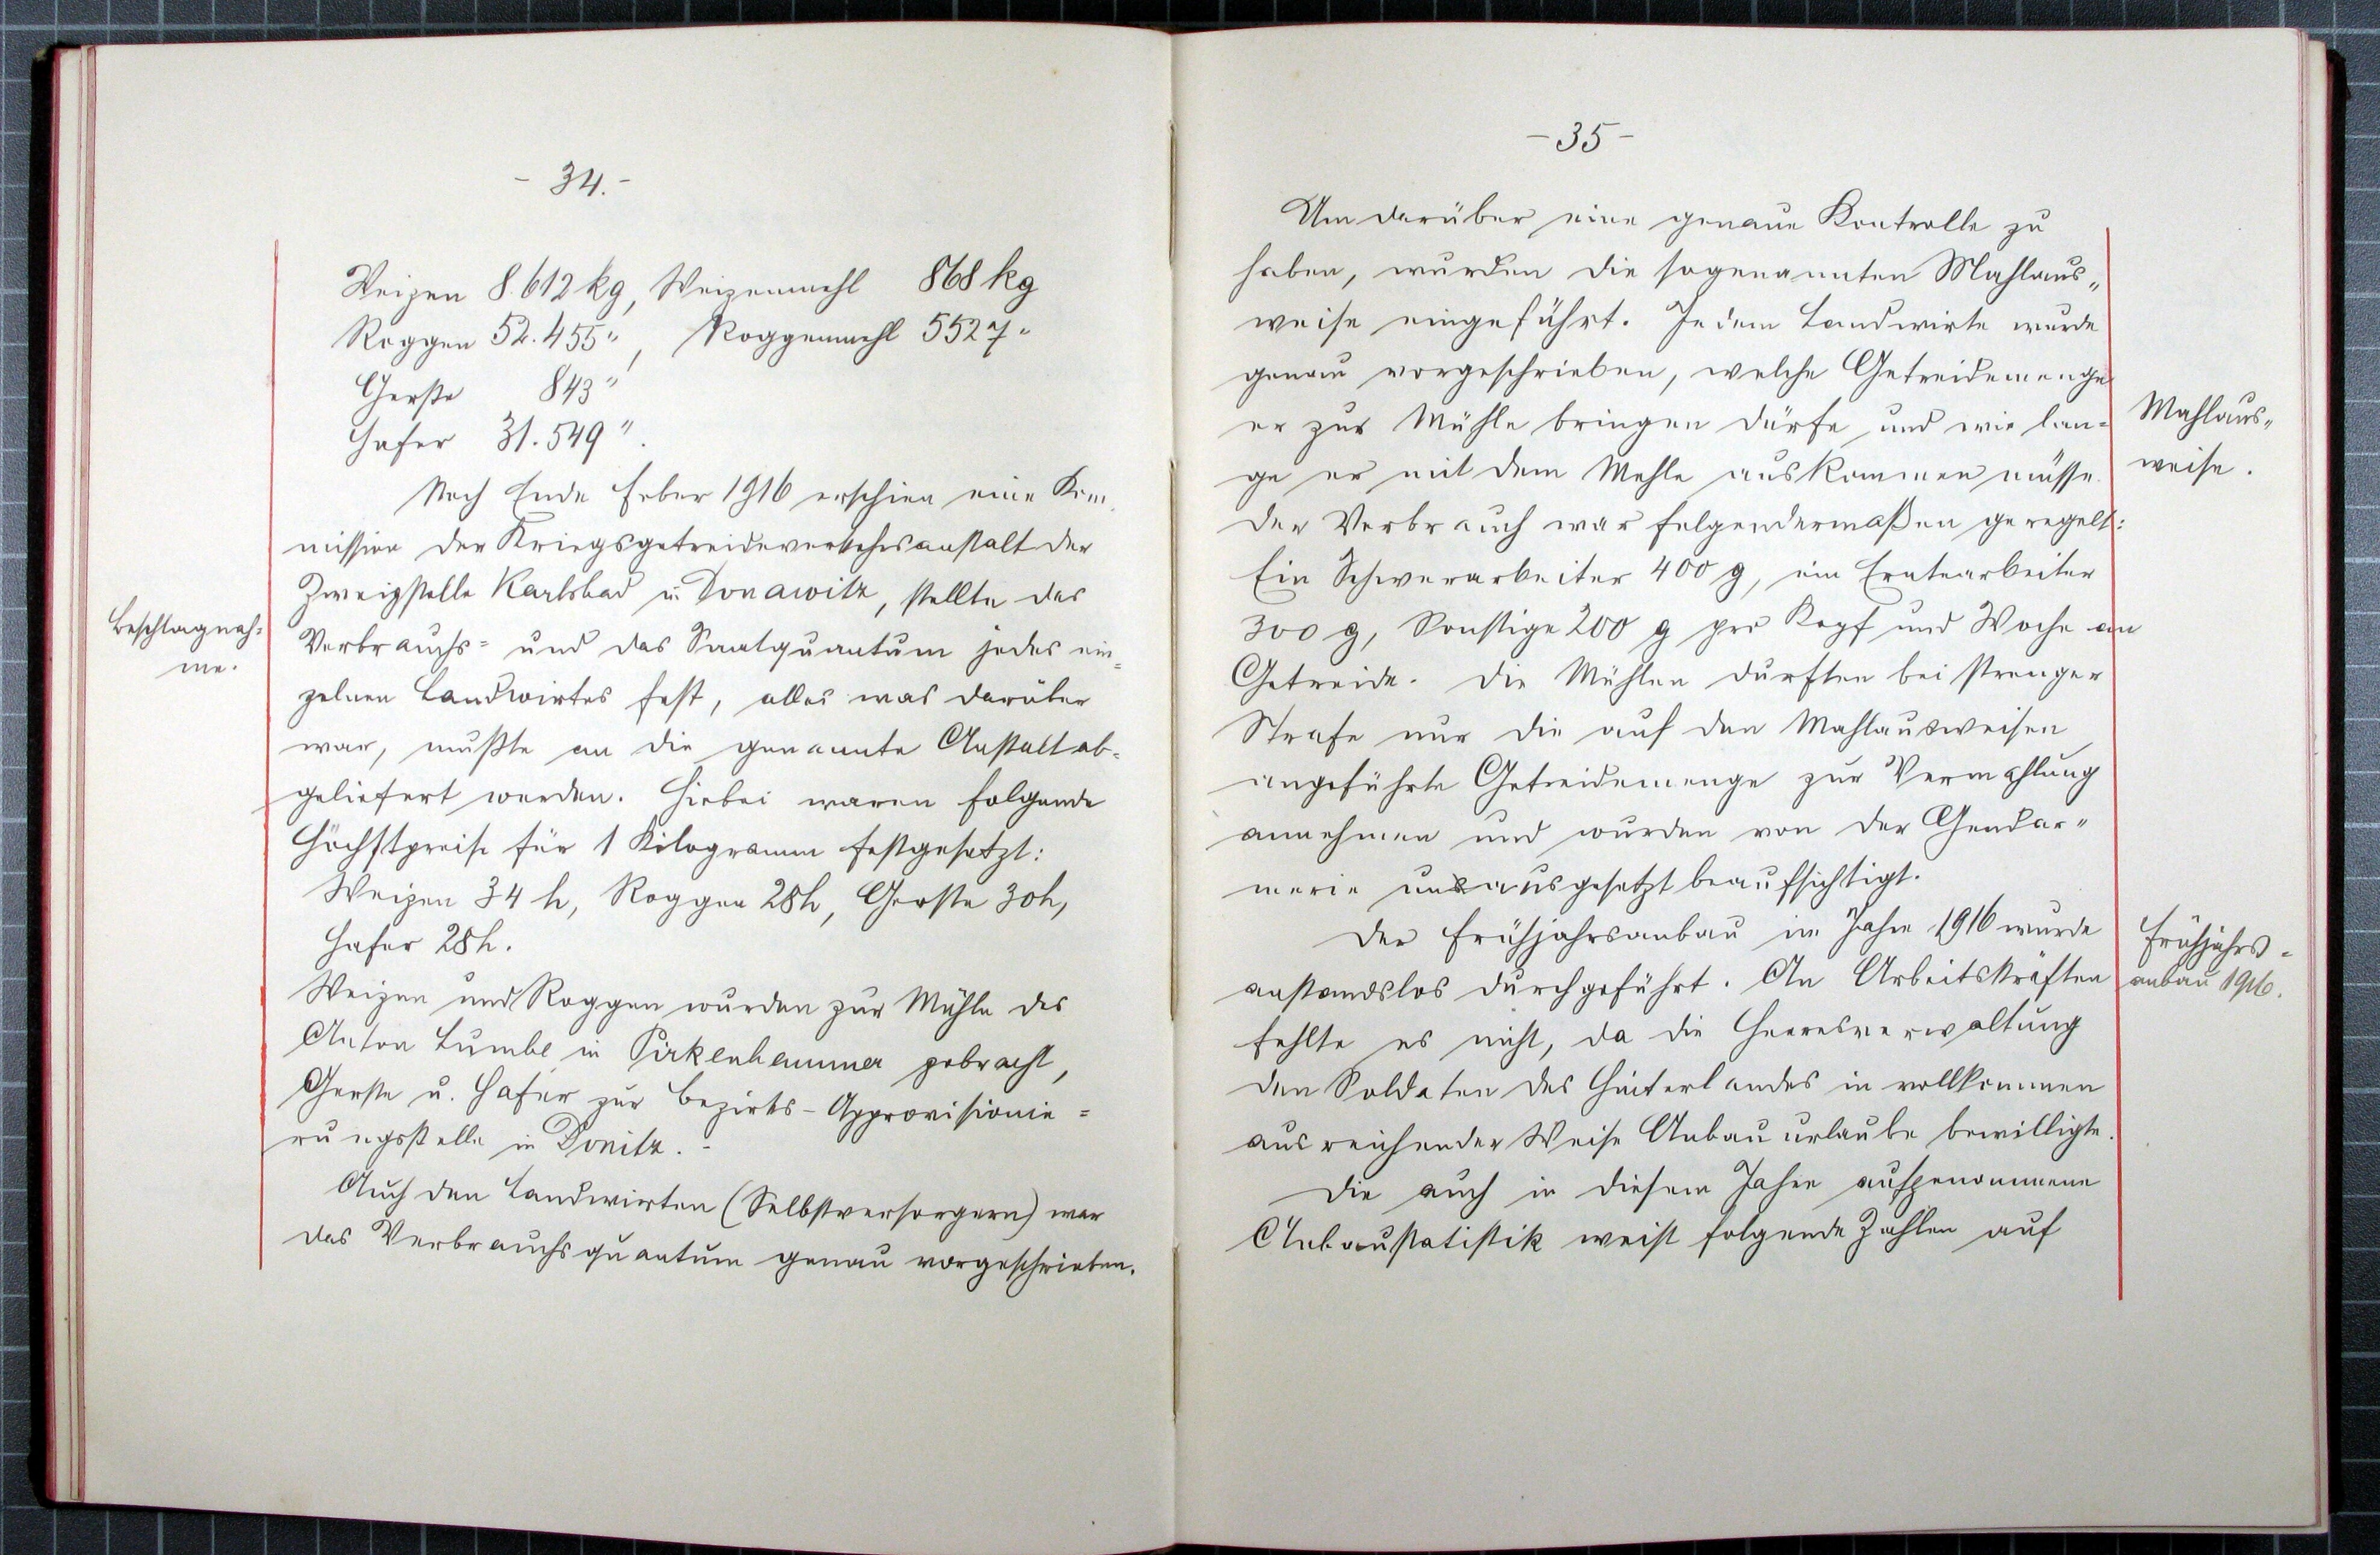 - 34. -
Weizen 8.612 kg, Weizenmehl 868 kg
Roggen 52.455 ", Roggenmehl 5527 "
Gerste 843 "
Hafer 31.549 ".
Noch Ende Feber 1916 erschien eine Kom-
mission der Kriegsgetreideverkehrsanstalt der
Zweigstelle Karlsbad in Donawitz, stellte das
Beschlagnah-
me.
Verbrauchs- und das Saatquantum jedes ein-
zelnen Landwirtes fest, alles was darüber
war, mußte an die genannte Anstalt ab-
geliefert werden. Hiebei waren folgende
Höchstpreise für 1 Kilogramm festgesetzt:
Weizen 34 h, Roggen 28h, Gerste 30h,
Hafer 28h.
Weizen und Roggen wurden zur Mühle des
Anton Lumbe in Pirkenhammer gebracht,
Gerste u. Hafer zur Bezirks-Approvisionie-
rungsstelle in Donitz. -
Auch den Landwirten (Selbstversorgern) war
das Verbrauchsquantum genau vorgeschrieben.
- 35 -
Um darüber eine genaue Kontrolle zu
haben, wurden die sogenannten Mahlaus-
weise eingeführt. Jedem Landwirte wurde
genau vorgeschrieben, welche Getreidemenge
er zur Mühle bringen dürfe und wie lan-
ge er mit dem Mehle auskommen müsse.
Mahlaus-
weise.
Der Verbrauch war folgendermaßen geregelt:
Ein Schwerarbeiter 400 g, ein Erntearbeiter
300 g, Sonstige 200 g pro Kopf und Woche an
Getreide. Die Mühlen durften bei strenger
Strafe nur die auf den Mahlausweisen
angeführte Getreidemenge zur Vermahlung
annehmen und wurden von der Gendar-
merie unausgesetzt beaufsichtigt.
Der Frühjahrsanbau im Jahre 1916 wurde
anstandslos durchgeführt. An Arbeitskräften
Frühjahrs-
anbau 1916.
fehlte es nicht, da die Heeresverwaltung
den Soldaten des Hinterlandes in vollkommen
ausreichender Weise Anbauurlaube bewilligte.
Die auch in diesem Jahre aufgenommene
Anbaustatistik weist folgende Zahlen auf